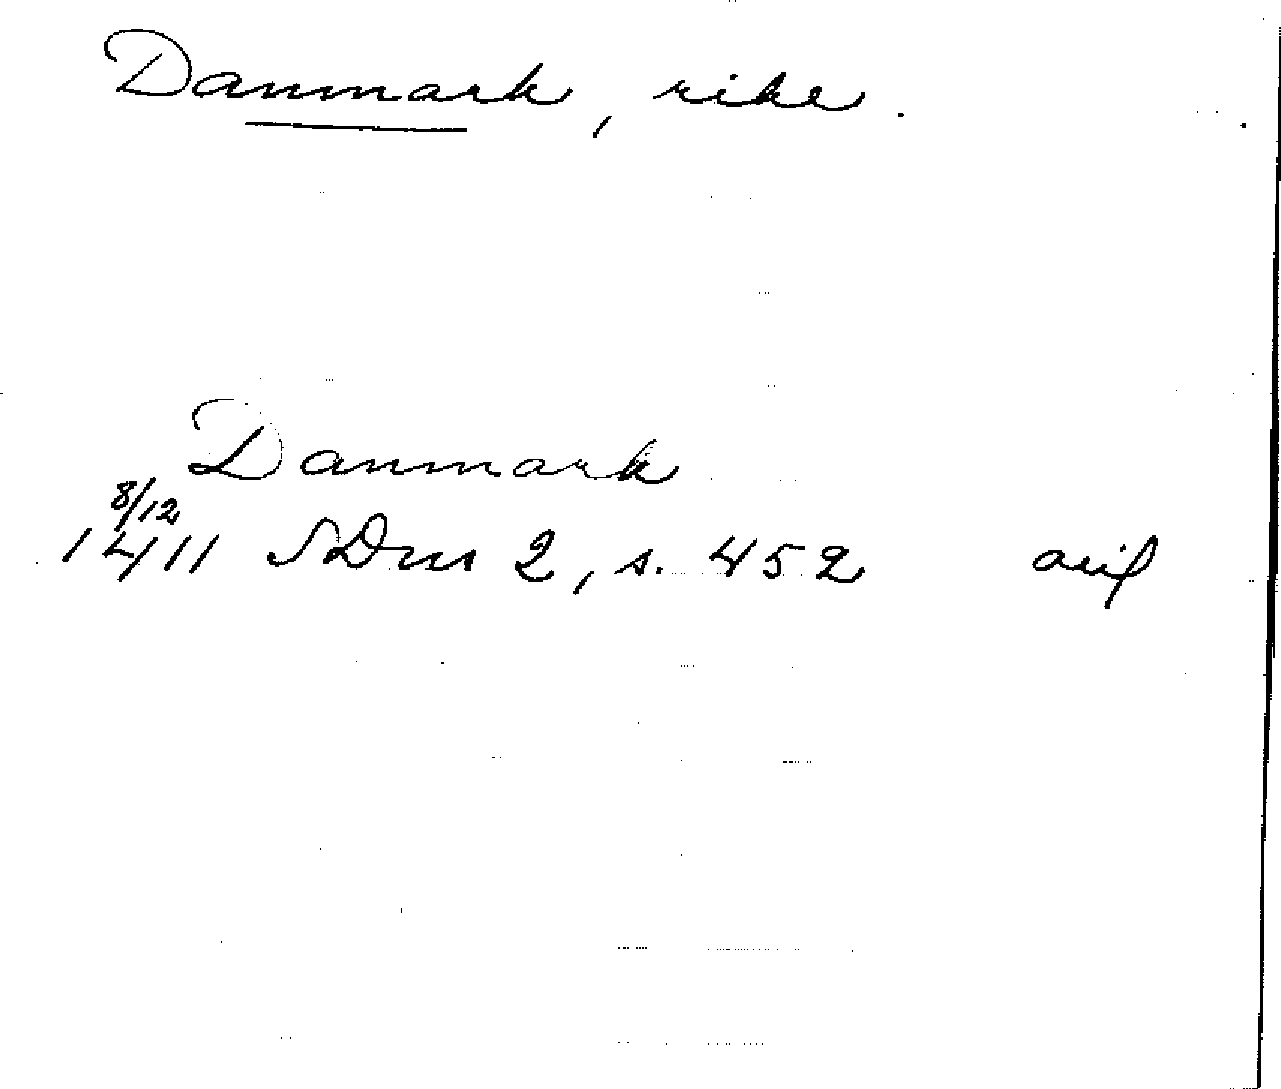 Danmark, rike.
Danmark
8/12
1411 SDns 2, s. 452 avi